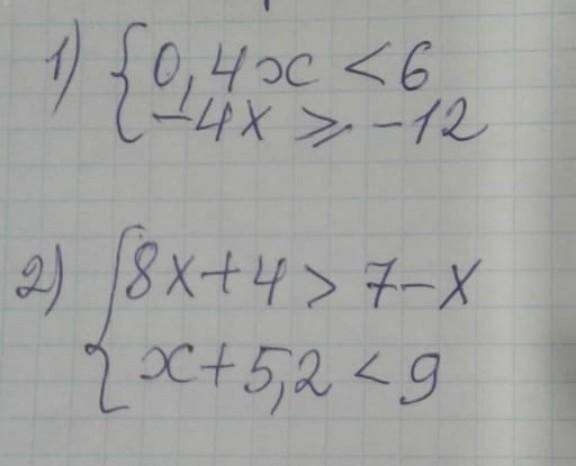 1) { 0,4x < 6
-4x ⩾ -12
2) { 8x+4 > 7-x
x+5,2 < 9